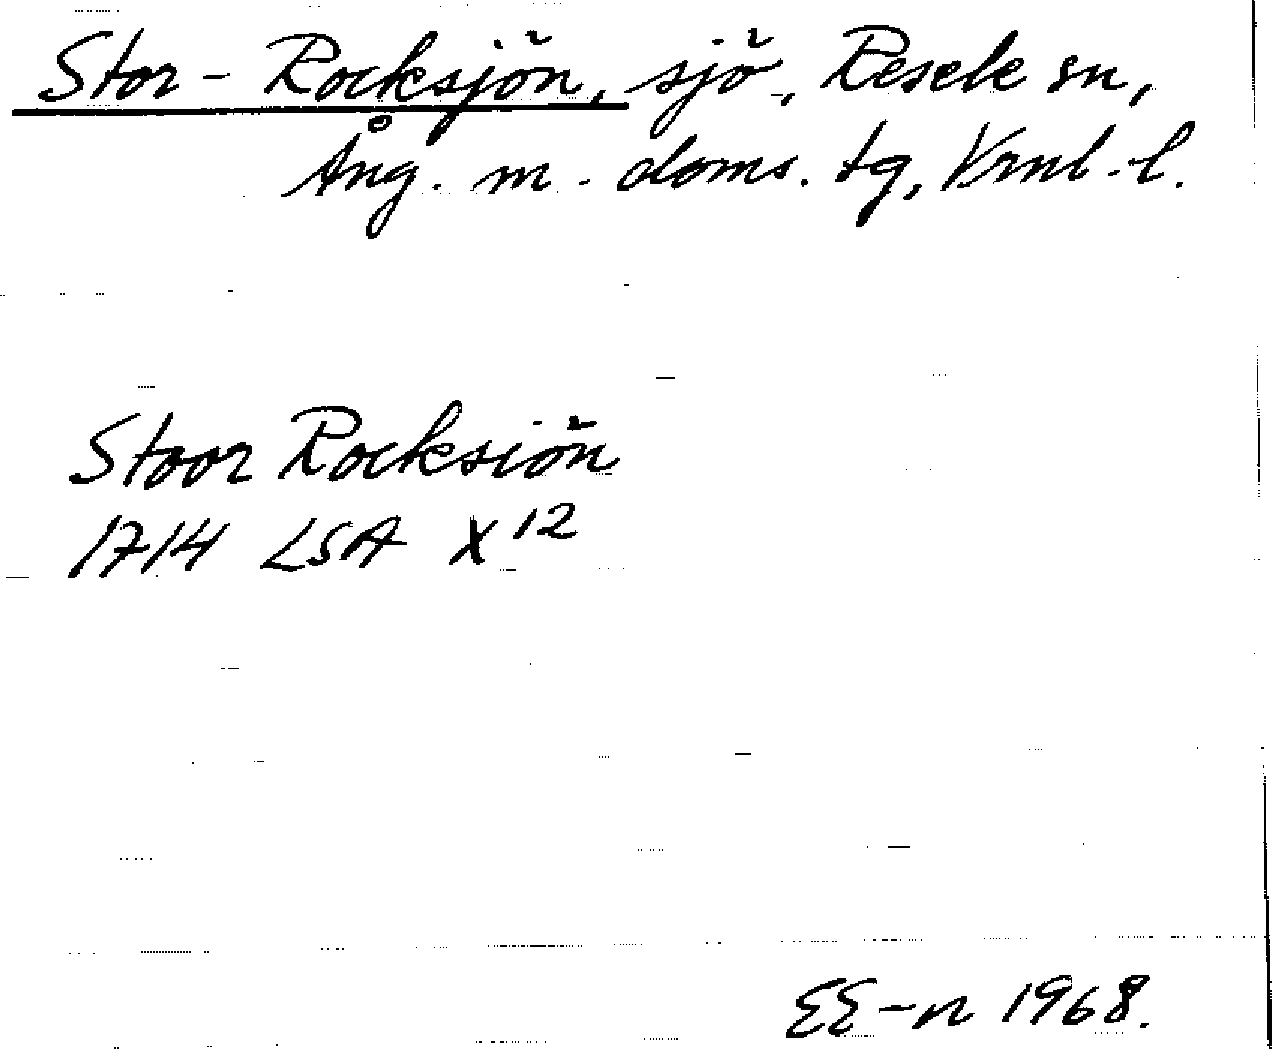 Stor-Rocksjön, sjö, Resele sn,
Ång. m. doms. tg, Vrnl. l.
Stoor Rocksiön
1714 LSA X 12
EE-n 1968.